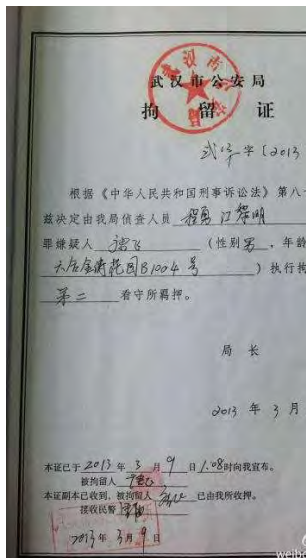 武汉市公安局
拘 留 证
字〔2013
根据《中华人民共和国刑事诉讼法》第八十
兹决定由我局侦查人员 程勇 江黎明
罪嫌疑人 （性别 男 ，年龄
花园B1004号 ）执行拘
第二 看守所羁押。
局 长
2013 年 3 月
本证已于 2013 年 3 月 9 日 1:08 时向我宣布。
被拘留人
本证副本已收到，被拘留人 已由我所收押。
接收民警
2013 年 3 月 9 日
weibo